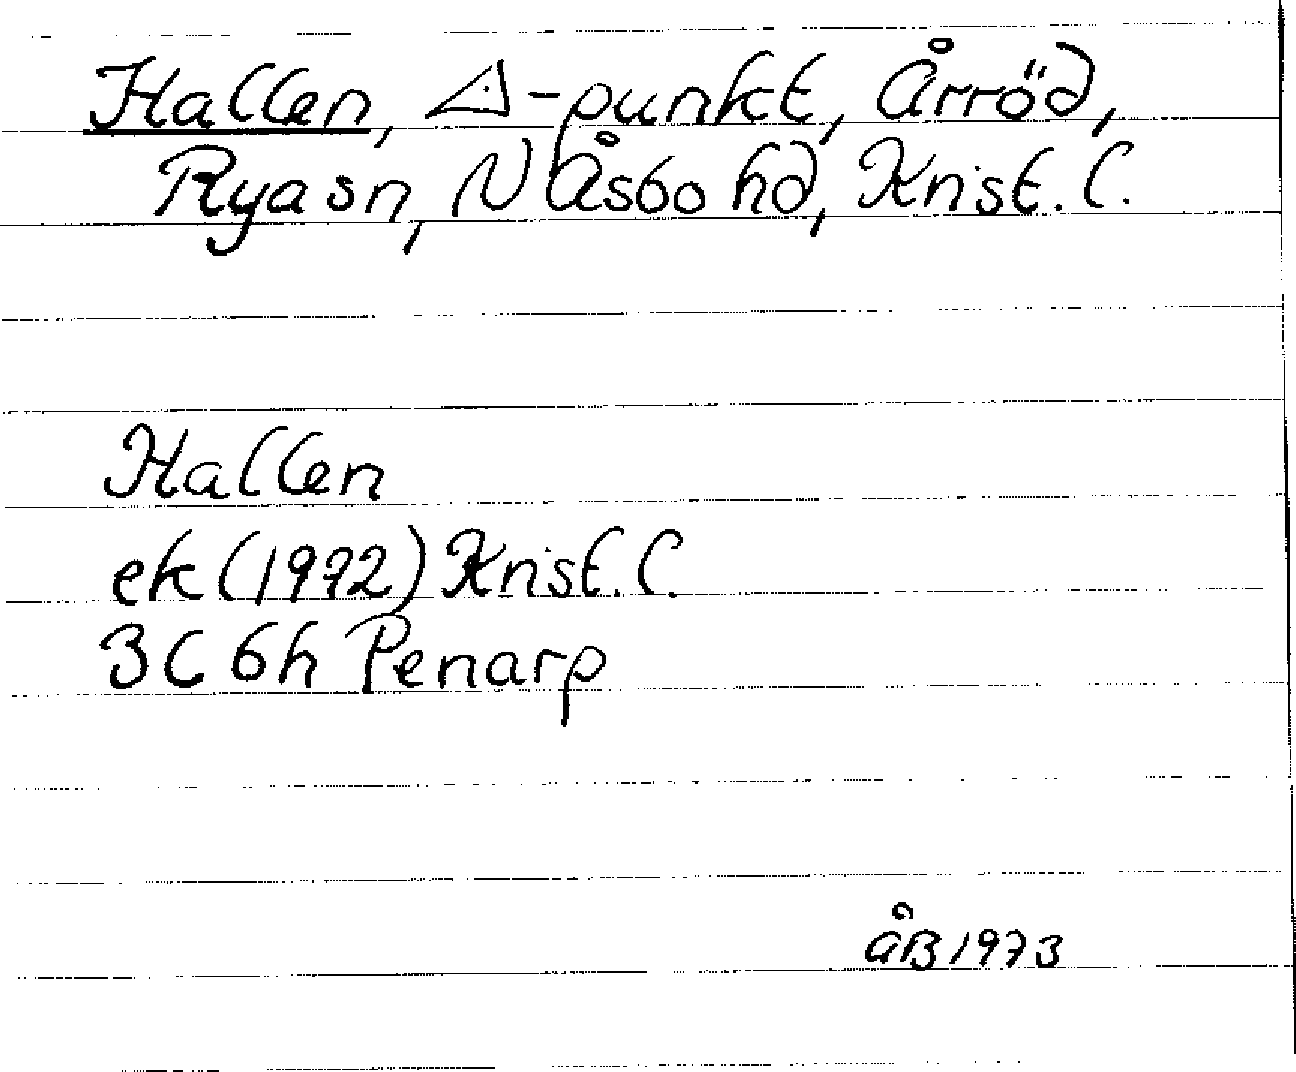 Hallen, ⊿-punkt, Årröd,
Rya sn, N Åsbo hd, Krist. l.
Hallen
ek (1972) Krist. l.
3C 6h Penarp
ÅB 1973